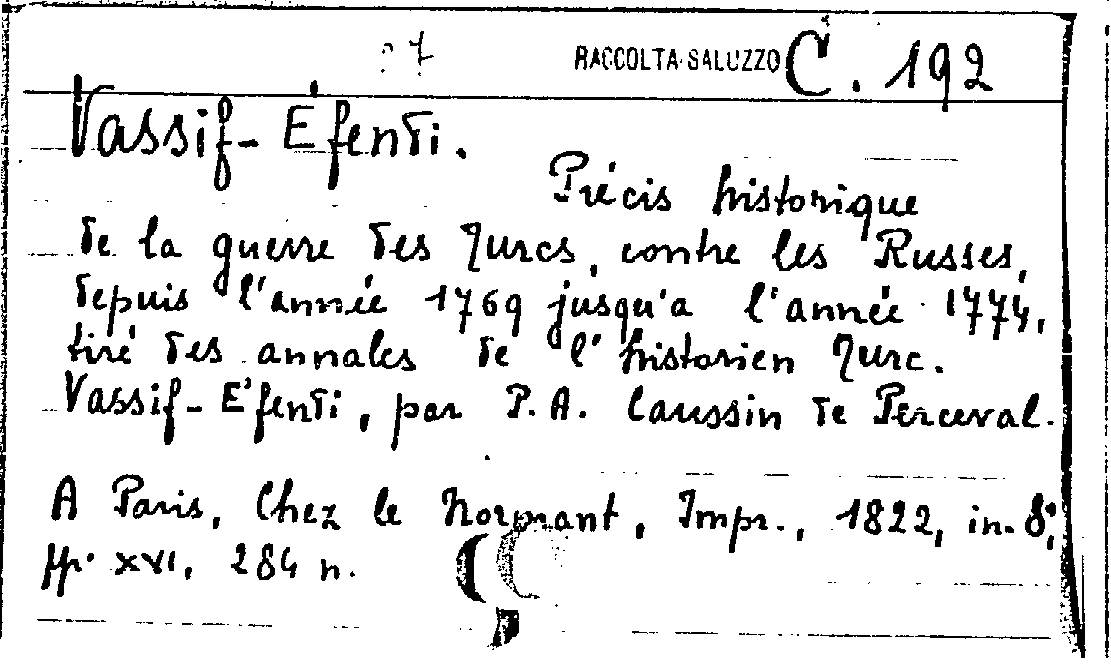 RACCOLTA SALUZZO C. 192
Vassif-Éfendi.
Précis historique
de la guerre des Turcs, contre les Russes,
depuis l'année 1769 jusqu'a l'année 1774,
tiré des annales de l'historien Turc.
Vassif-Éfendi, par P. A. Caussin de Perceval.
A Paris, Chez le Normant, Impr., 1822, in-8°,
pp. XVI, 284 n.